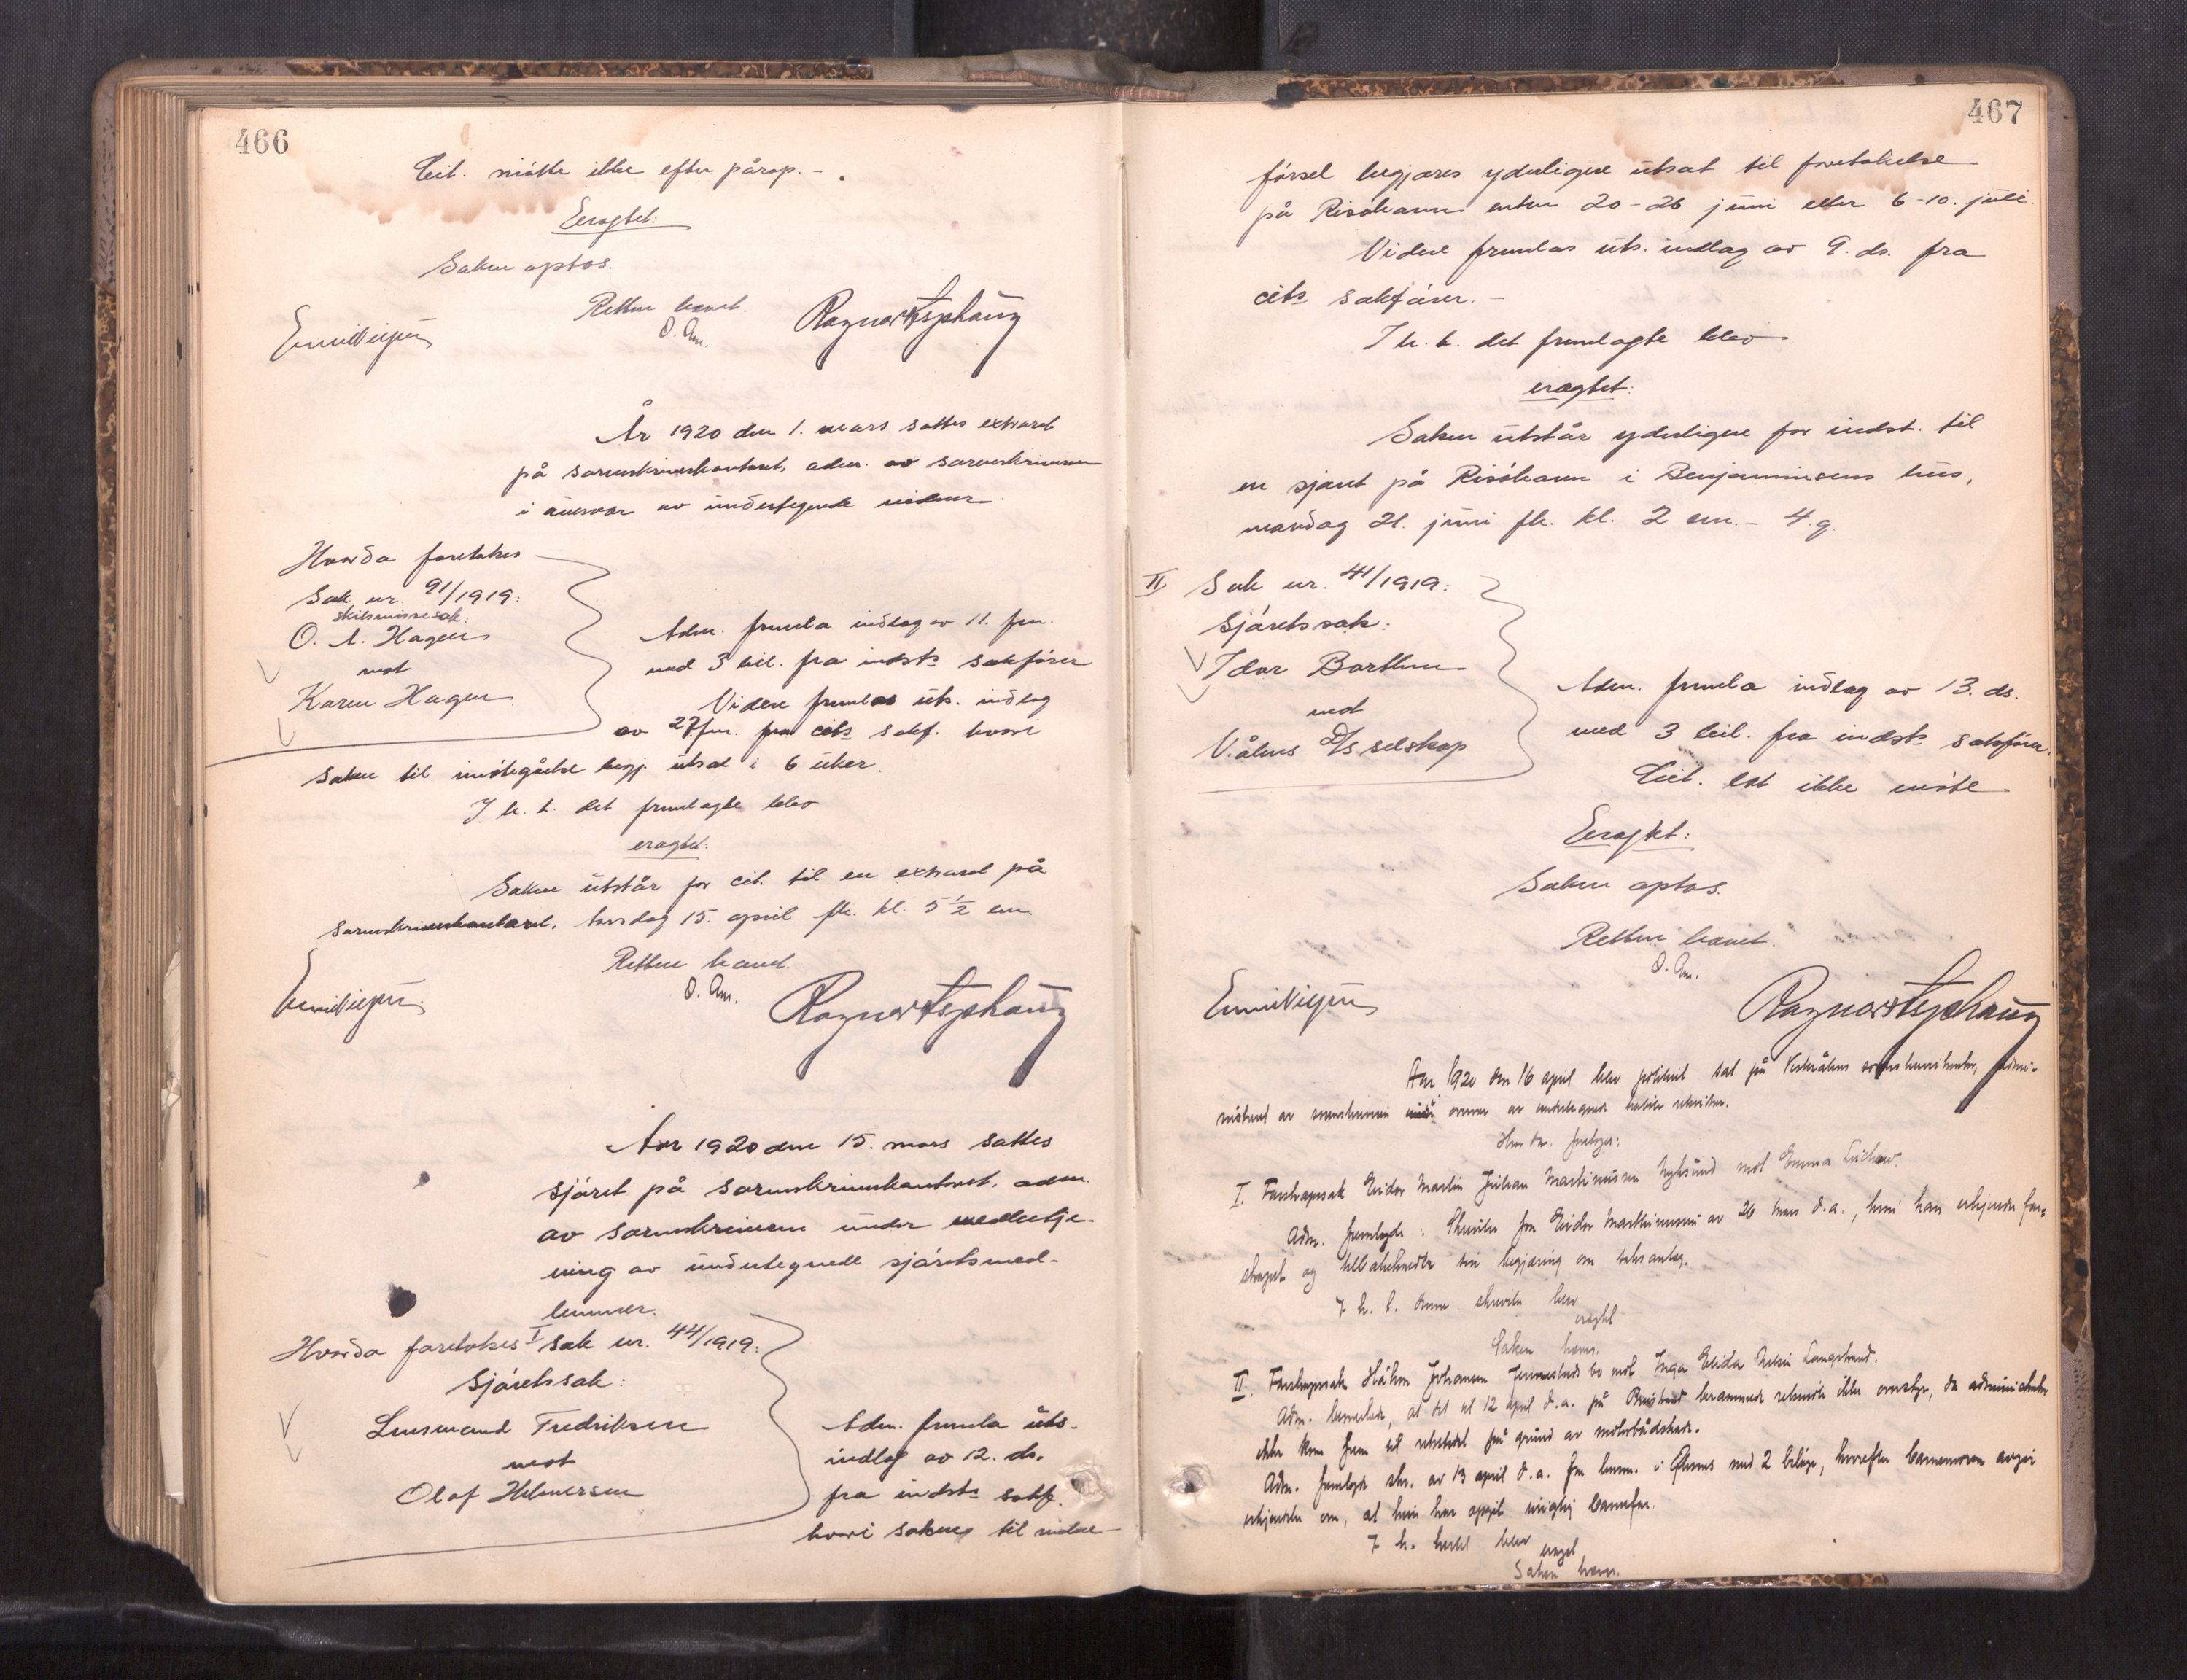 466
Cit. møtte ikke efter påråp. -
Eragtet:
Saken optas.
Retten hævet.
O. Am.
År 1920 den 1. mars sattes extraret
på sorenskriverkontoret, adm. av sorenskriveren
i nærvær av undertegnede vidner.
Hvorda foretokes
Sak nr. 91/1919:
skilsmissesak:
O. A. Hagen
mot
Karen Hagen
Adm. fremla indlæg av 11. fm.
med 3 bil. fra indsts sakfører
Videre fremlas uts. indlæg
av 27. fm. fra cits sakf. hvori
saken til imøtegåelse begj. utsat i 6 uker.
I h. t. det fremlagte blev
eragtet:
Saken utstår for cit. til en extraret på
sorenskriverkontoret, torsdag 15. april fk. kl. 5 1/2 em.
Retten hævet.
O. Am.
Aar 1920 den 15. mars sattes
sjøret på sorenskriverkontoret, adm.
av sorenskriveren under medbetje-
ning av undertegnede sjøretsmed-
lemmer.
Hvorda foretokes I sak nr. 44/1919:
Sjøretssak:
Lensmand Fredriksen
mot
Olaf Helmersen
Adm. fremla uts.
indlæg av 12. ds.
fra indsts sakf.
hvori saken til vidne-
467
førsel begjæres yderligere utsat til foretakelse
på Risøhavn enten 20-26 juni eller 6-10. juli.
Videre fremlas uts. indlæg av 9. ds. fra
cits sakfører. -
I h. t. det fremlagte blev
eragtet:
Saken utstår yderligere for indst. til
en sjøret på Risøhavn i Benjaminsens hus,
mandag 21. juni fk. kl. 2 em. - 4. g.
II Sak nr. 41/1919:
Sjøretssak:
Idar Barthen
mot
V.ålens D/S selskap
Adm. fremla indlæg av 13. ds.
med 3 bil. fra indsts sakfører.
Cit. lot ikke møte
Eragtet:
Saken optas.
Retten hævet.
O. Am.
Aar 1920 den 16 april blev politiret sat på Vesterålens sorenskriverkontor, admi-
nistreret av sorenskriveren i nærvær av undertegnede retsvitner.
Hvorda foretoges:
I. Farskapssak Eidar Martin Julian Martinussen Nyksund mot Emma
Adm. fremlagde: Skrivelse fra Eidar Martinussen av 26 mars d.a., hvori han erkjender far-
skapet og tilbakekalder sin begjæring om saksanlæg.
I h. t. denne skrivelse blev
eragtet
Saken hæves.
II. Farskapssak Håkon Johansen Jennestad bo mot Inga Elida Langstrand.
Adm. bemerket, at det til 12 april d.a. på berammede retsmøte ikke administrator
ikke kom frem til retstedet på grund av motorbådskade.
Adm. fremlagde skr. av 13 april d.a. fra lensm. i Øksnes med 2 bilage, hvorefter barnemoren avgir
erklæring om, at hun har opgit uriktig barnefar.
I h. hertil blev eragtet
Saken hæves.